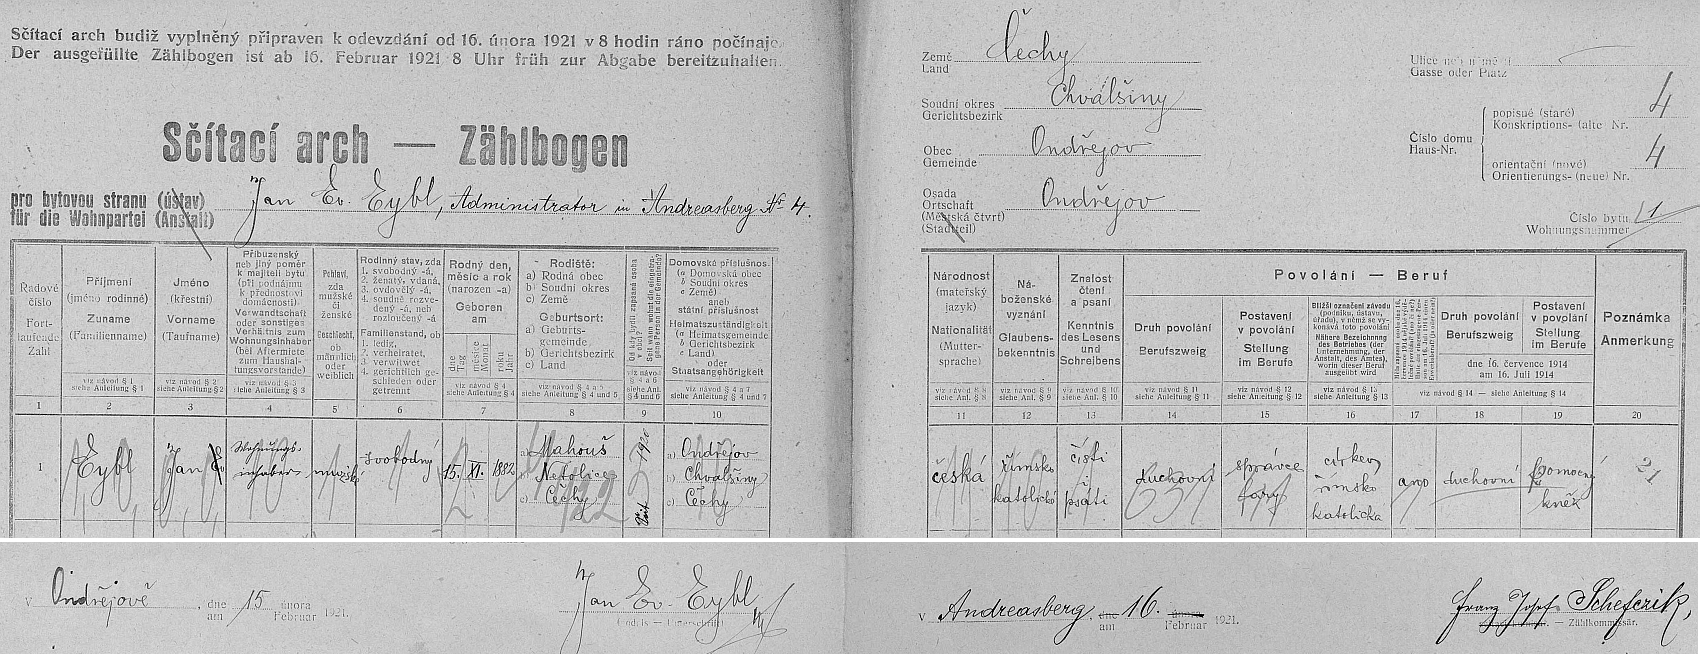 Sčítací arch budiž vyplněný připraven k odevzdání od 16. února 1921 v 8 hodin ráno počínaje.
Der ausgefüllte Zählbogen ist ab 16. Februar 1921 8 Uhr früh zur Abgabe bereitzuhalten.
Sčítací arch — Zählbogen
pro bytovou stranu (ústav)
für die Wohnpartei (Anstalt)
Jan Ev. Eybl, Administrator in Andreasberg Nr 4.
Radové číslo
Fortlaufende Zahl
Příjmení
(jméno rodinné)
Zuname
(Familienname)
viz návod § 1
siehe Anleitung § 1
Jméno
(křestní)
Vorname
(Taufname)
viz návod § 2
siehe Anleitung § 2
Příbuzenský
neb jiný poměr
k majiteli bytu
(při podnájmu
k přednostovi
domácnosti)
Verwandtschaft
oder sonstiges
Verhältnis zum
Wohnungsinhaber
(bei Aftermiete
zum Haushaltungsvorstande)
viz návod § 3
siehe Anleitung § 3
Pohlaví,
zda
mužské
či
ženské
Geschlecht,
ob
männlich
oder
weiblich
Rodinný stav, zda
1. svobodný -á,
2. ženatý, vdaná,
3. ovdovělý -á,
4. soudně rozvedený -á, neb
rozloučený -á
Familienstand, ob
1. ledig,
2. verheiratet,
3. verwitwet
4. gerichtlich geschieden oder
getrennt
Rodný den,
měsíc a rok
(narozen -a)
Geboren
am
dne
Tag
měsíce
Monat
roku
Jahr
viz návod § 4
siehe Anleitung § 4
Rodiště:
a) Rodná obec
b) Soudní okres
c) Země
Geburtsort:
a) Geburtsgemeinde
b) Gerichtsbezirk
c) Land
viz návod § 4 a 5
siehe Anleitung § 4 und 5
Domovská příslušnos.
(a Domovská obec
b Soudní okres
c Země)
aneb
státní příslušnost
Heimatszuständigkeit
(a Heimatsgemeinde
b Gerichtsbezirk
c Land)
oder
Staatsangehörigkeit
viz návod § 4 a 7
siehe Anleitung § 4 und 7
1 2 3 4 5 6 7 8 9 10
1
Eybl
Jan Ev
Wohnungsinhaber
mužské
svobodný
15. XI. 1882
a) Mahouš
b) Netolice
c) Čechy
Seit 1920
a) Ondřejov
b) Chvalšiny
c) Čechy
Země
Land
Čechy
Soudní okres
Gerichtsbezirk
Chvalšiny
Obec
Gemeinde
Ondřejov
Osada
Ortschaft
(Městská čtvrť)
(Stadtteil)
Ondřejov
Gasse oder Platz
Číslo domu
Haus-Nr.
popisné (staré)
Konskriptions- (alte) Nr.
4
orientační (nové)
Orientierungs- (neue) Nr.
4
Číslo bytu
Wohnungsnummer
1
Národnost
(mateřský
jazyk)
Nationalität
(Muttersprache)
Náboženské
vyznání
Glaubensbekenntnis
viz návod § 9
siehe Anl. § 9
Znalost
čtení
a psaní
Kenntnis
des Lesens
und
Schreibens
viz návod § 10
siehe Anl. § 10
Povolání — Beruf
Druh povolání
Berufszweig
viz návod § 11
siehe Anleitung § 11
Postavení
v povolání
Stellung
im Berufe
viz návod § 12
siehe Anleitung § 12
Bližší označení závodu
(podniku, ústavu,
úřadu), v němž se vykonává toto povolání
Nähere Bezeichnung
des Betriebes (der
Unternehmung, der
Anstalt, des Amtes),
worin dieser Beruf
ausgeübt wird
viz návod § 13
siehe Anleitung § 13
Druh povolání
Berufszweig
Postavení
v povolání
Stellung
im Berufe
dne 16. července 1914
am 16. Juli 1914
viz návod § 14 — siehe Anleitung § 14
Poznámka
Anmerkung
11 12 13 14 15 16 17 18 19 20
česká
římsko
katolické
čísti
i
psáti
duchovní
správce
fary
církev
římsko
katolická
ano
duchovní
pomocný
kněz
21
V Ondřejově, dne
am
15
února
Februar
1921.
Jan Ev. Eybl
V Andreasberg, dne
am
16.
února
Februar
1921.
Franz Josef Schefczik,
— Zählkommissär.